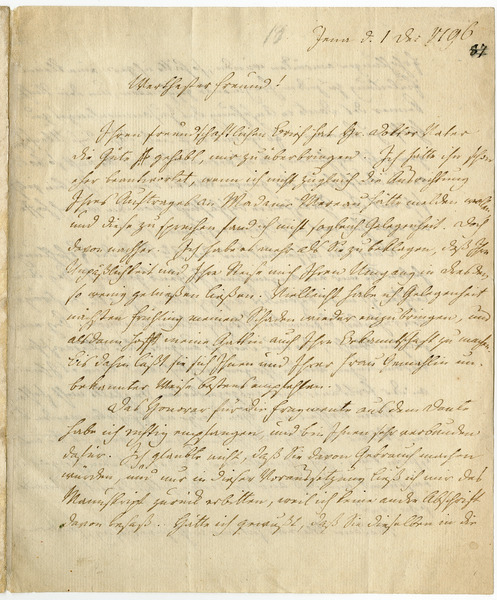 13
Jena d. 1 Dec 1796
37
Werthester Freund!
Ihren freundschaftlichen Brief hat Hr. Doktor Vater
die Güte gehabt, mir zu überbringen. Ich hätte ihn schon
eher beantwortet, wenn ich nicht zugleich die Ausrichtung
Ihres Auftrages an Madame Mereau hätte melden wollen,
und diese zu sprechen fand ich nicht sogleich Gelegenheit. Doch
davon nachher. Ich habe es mehr als Sie zu beklagen, daß Ihre
Unpäßlichkeit und Ihre Reise mich Ihren Umgang in
so wenig genießen ließen. Vielleicht habe ich Gelegenheit
nächsten Frühling meinen Schaden wieder einzubringen, und
alsdann hofft meine Gattin auch Ihre Bekanntschaft zu machen.
Bis dahin läßt sie sich Ihnen und Ihrer Frau Gemahlin un-
bekannter Weise bestens empfehlen.
Das Honorar für die Fragmente aus dem Dante
habe ich richtig empfangen, und bin Ihnen sehr verbunden
dafür. Ich glaubte nicht, daß Sie davon Gebrauch machen
würden, und nur in dieser Voraussetzung ließ ich mir das
Manuskript zurück erbitten, weil ich keine andre Abschrift
davon besaß. Hätte ich gewußt, daß Sie dieselben in die